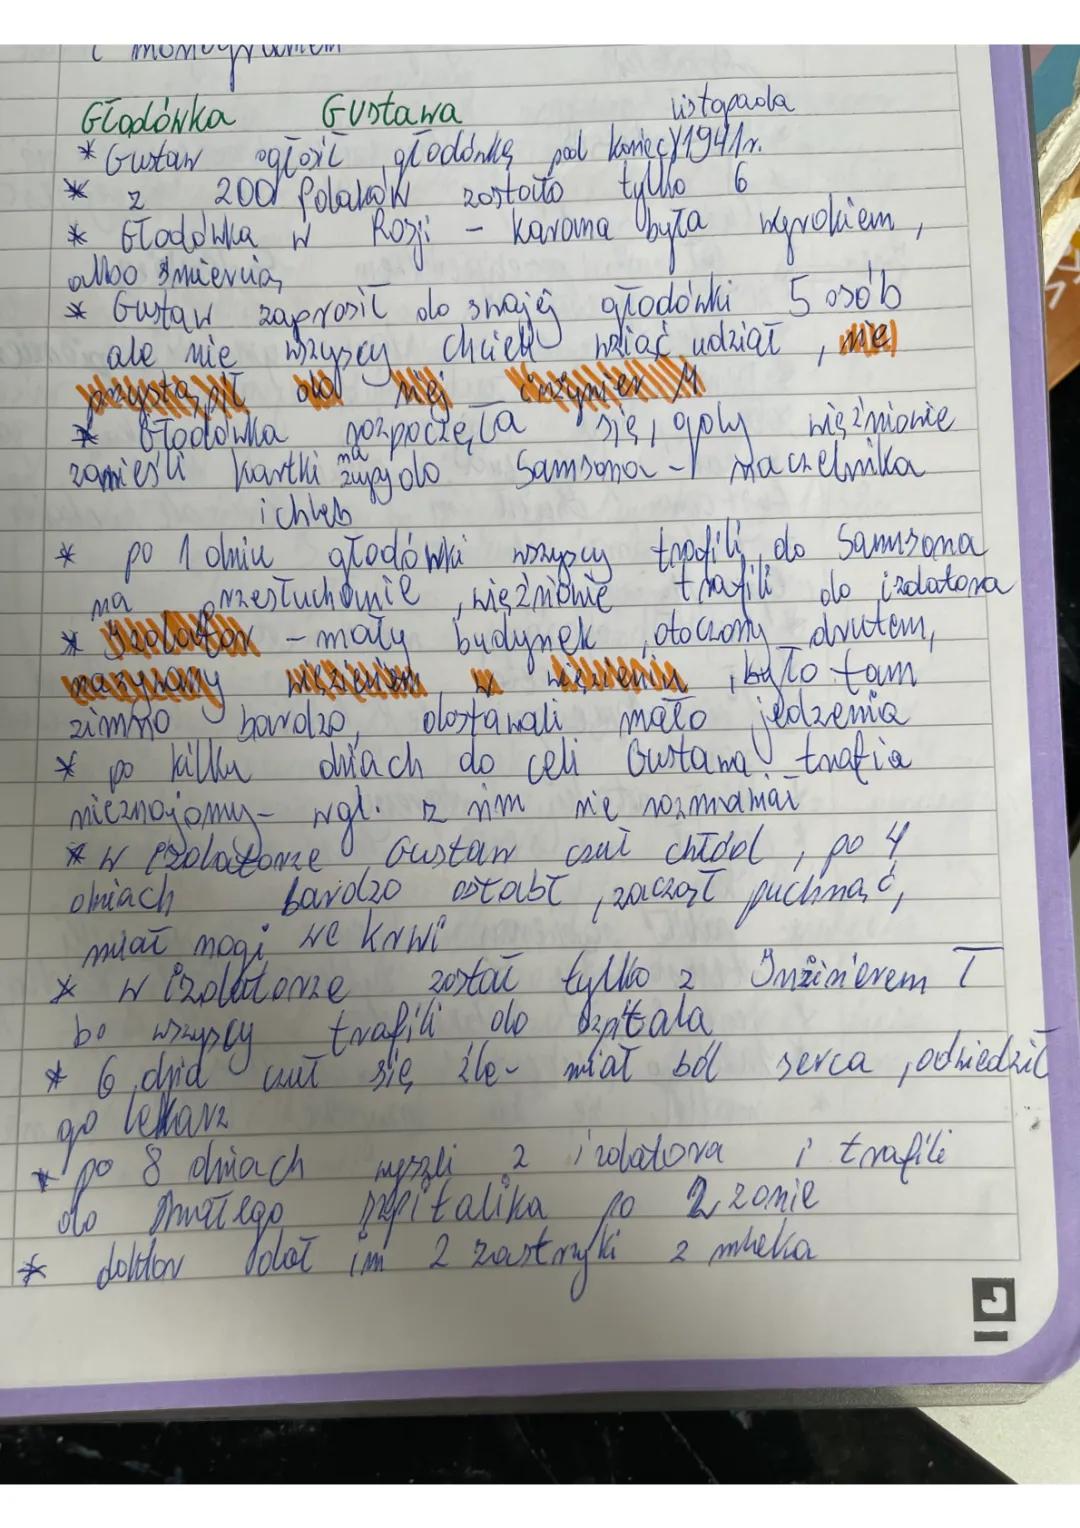 i monogramem
Głodówka Gustawa listopada
* Gustaw ogłosił głodówkę pod koniec 1941r.
* z 200 Polaków zostało tylko 6
* Głodówka w Rosji - karana była wyrokiem,
albo śmiercią
* Gustaw zaprosił do swojej głodówki 5 osób
ale nie wszyscy chcieli wziąć udział, nie
przystąpił do niej inżynier M
* Głodówka rozpoczęła się, gdy więźniowie
zanieśli kartki na zupy do Samsona - naczelnika
i chleb
* po 1 dniu głodówki wszyscy trafili do Samsona
na przesłuchanie, więźniowie trafili do izolatora
* Izolator - mały budynek, otoczony drutem,
nazywany więzieniem w więzieniu, było tam
zimno bardzo, dostawali mało jedzenia
* po kilku dniach do celi Gustawa trafia
nieznajomy - wgl. z nim nie rozmawiał
* w izolatorze Gustaw czuł chłód, po 4
dniach bardzo osłabł, zaczął puchnąć,
miał nogi we krwi
* w izolatorze został tylko z Inżinierem T
bo wszyscy trafili do szpitala
* 6 dnia czuł się źle - miał ból serca, odwiedził
go lekarz
* po 8 dniach wyszli z izolatora i trafili
do małego szpitalika po 2 zonie
* doktor dał im 2 zastrzyki z mleka